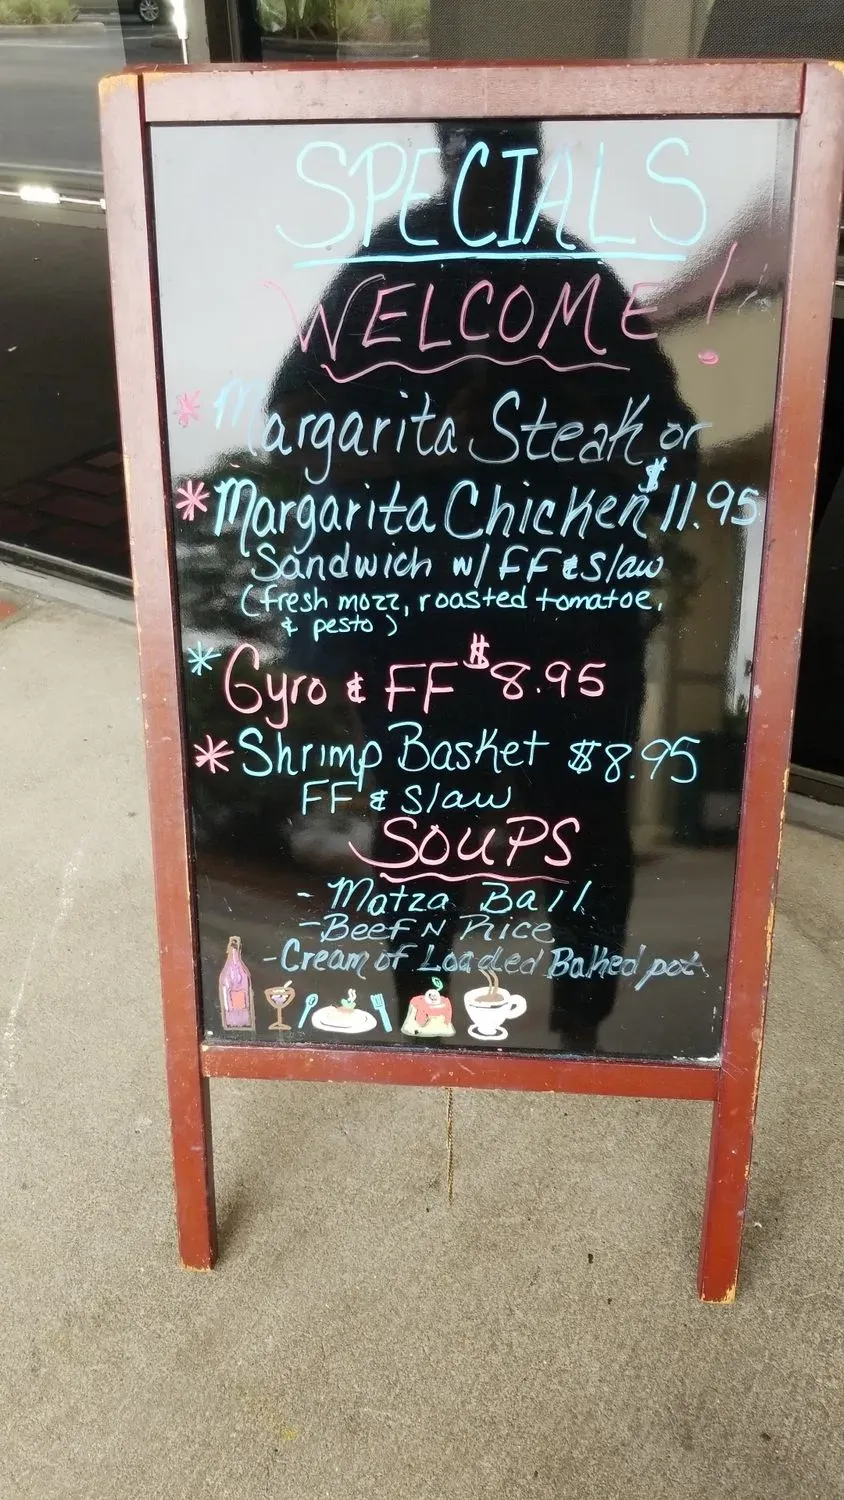 SPECIALS
WELCOME!
* Margarita Steak or
* Margarita Chicken $11.95
Sandwich w/ FF & Slaw
(fresh mozz, roasted tomatoe,
& pesto)
* Gyro & FF $8.95
* Shrimp Basket $8.95
FF & Slaw
SOUPS
- Matza Ball
- Beef N Rice
- Cream of Loaded Baked pot